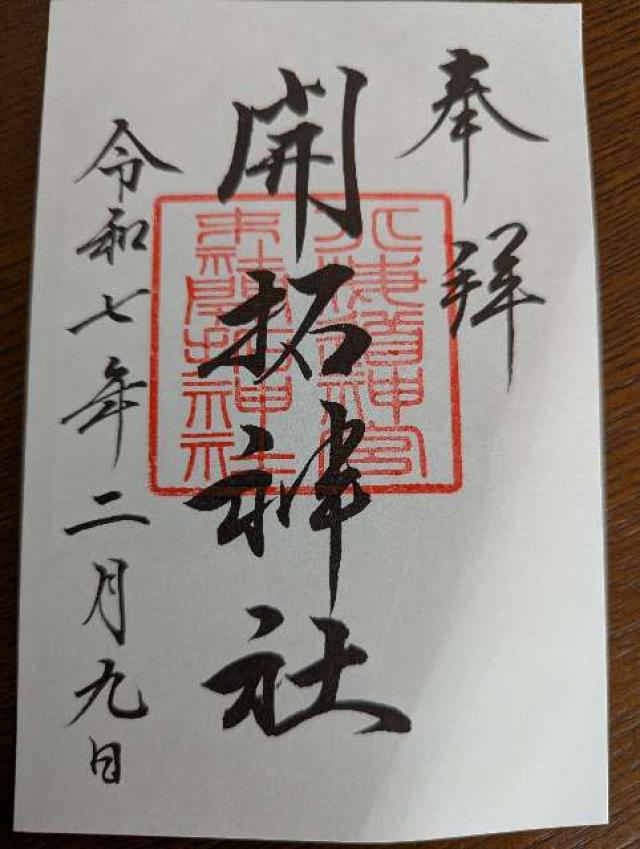 奉拜
開拓神社
北海道神宮
末社開拓神社
令和七年二月九日